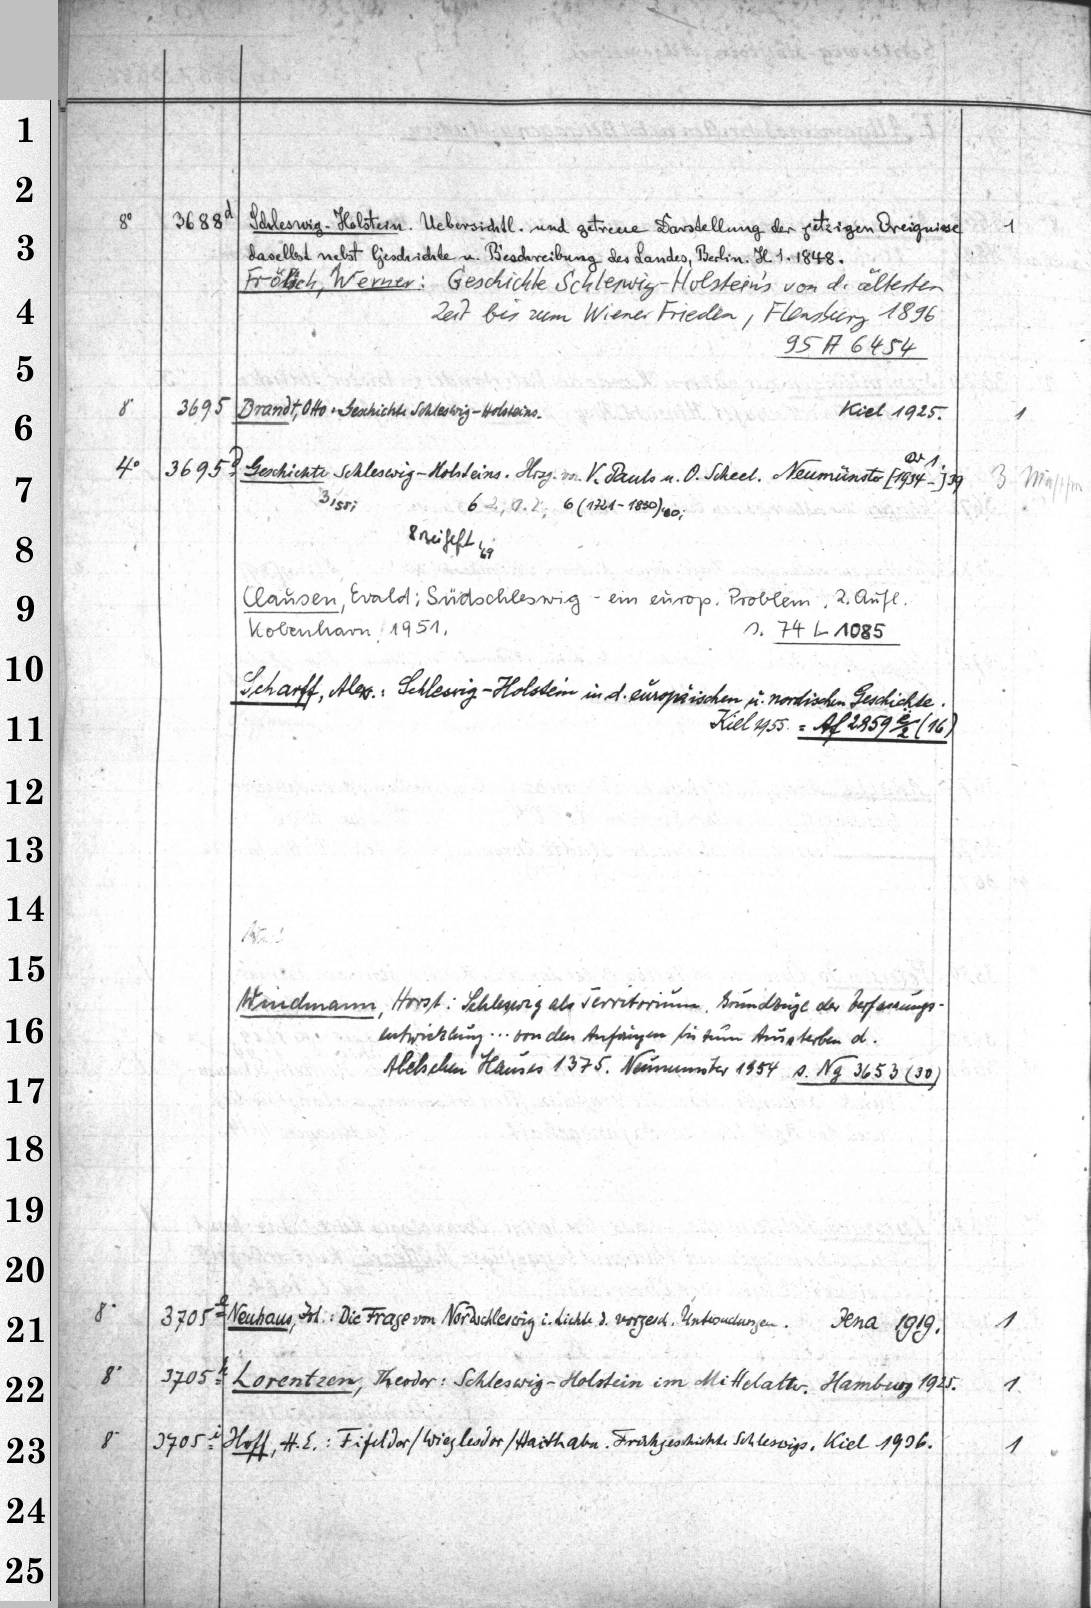 1
2
8° 3688d Schleswig-Holstein. Uebersichtl. und getreue Darstellung der jetzigen Ereignisse 1
3 daselbst nebst Geschichte u. Beschreibung des Landes, Berlin. H. 1. 1848.
Werner: Geschichte Schleswig-Holsteins von d. ältesten
4 Zeit bis zum Wiener Frieden, Flensburg 1896
95 A 6454
5
8° 3695 Brandt, Otto: Geschichte Schleswig-Holsteins. Kiel 1925. 1
6
4° 3695 Geschichte Schleswig-Holsteins. Hrsg. von V. Pauls u. O. Scheel. Neumünster [1934-] 39 3
7
6 (1721-1830)
8 Beiheft
9 Clausen, Evald: Südschleswig - ein europ. Problem, 2. Aufl.
Kobenhavn 1951. s. 74 L 1085
10
Scharff, Alex.: Schleswig-Holstein in d. europäischen u. nordischen Geschichte.
11 Kiel 1955. = Af 2859 (16)
12
13
14
15
Windmann, Horst: Schleswig als Territorium. Grundzüge der Verfassungs-
16 entwicklung ... von den Anfängen bis zum Aussterben d.
Abelschen Hauses 1375. Neumünster 1954 s. Ng 3653 (30)
17
18
19
20
8° 3705g Neuhaus, Joh.: Die Frage von Nordschleswig i. Lichte d. vorgesch. Untersuchungen. Jena 1919. 1
21
8° 3705h Lorentzen, Theodor: Schleswig-Holstein im Mittelalter. Hamburg 1925. 1
22
8° 3705i Hoff, H. E.: Fifeldor/Wieglesdor/Haithabu. Frühgeschichte Schleswigs. Kiel 1936. 1
23
24
25